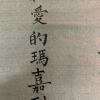 愛的瑪嘉